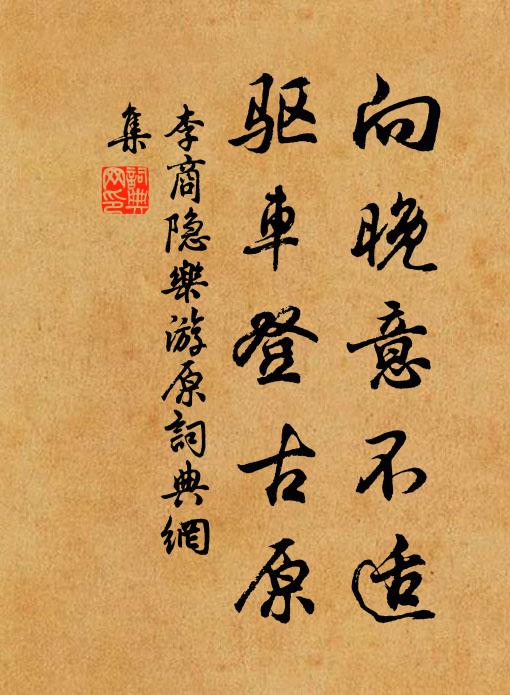 向晚意不适
驱車登古原
李商隐樂游原詞典網
集
詞典
网印